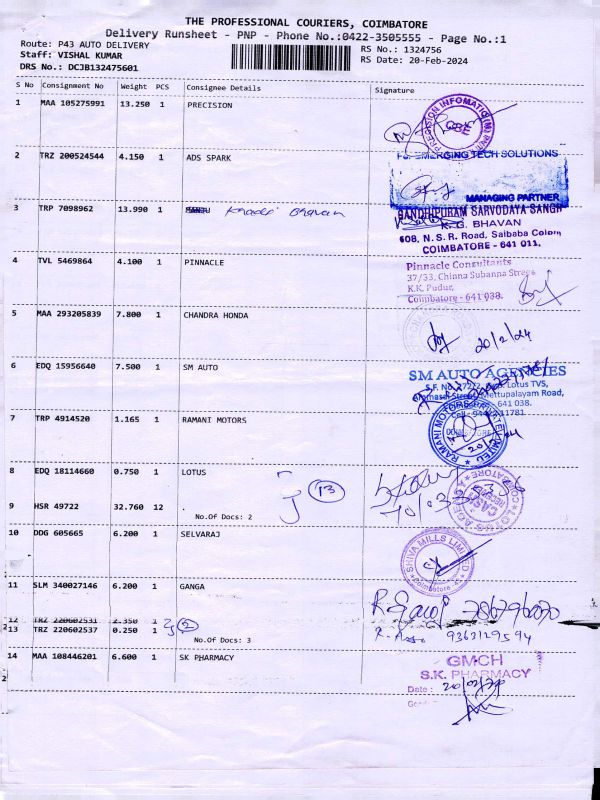 THE PROFESSIONAL COURIERS, COIMBATORE
Delivery Runsheet - PNP - Phone No.:0422-3505555 - Page No.:1
Route: P43 AUTO DELIVERY
RS No.: 1324756
Staff: VISHAL KUMAR
RS Date: 20-Feb-2024
DRS No.: DCJB132475601
S No Consignment No Weight PCS Consignee Details Signature
1 MAA 105275991 13.250 1 PRECISION
PRECISION INFOMATIC (M) PVT
CBE
2 TRZ 200524544 4.150 1 ADS SPARK
For EMERGING TECH SOLUTIONS
MANAGING PARTNER
3 TRP 7098962 13.990 1 Khadi Bhavan
GANDHIPURAM SARVODAYA SANGH
K. G. BHAVAN
608, N. S. R. Road, Saibaba Colony
COIMBATORE - 641 011.
4 TVL 5469864 4.100 1 PINNACLE
Pinnacle Consultants
37/33, Chinna Subanna Street
K.K. Pudur,
Coimbatore - 641 038.
5 MAA 293205839 7.800 1 CHANDRA HONDA
20/2/24
6 EDQ 15956640 7.500 1 SM AUTO
SM AUTO AGENCIES
Lotus TVS,
Mettupalayam Road,
641 038.
7 TRP 4914520 1.165 1 RAMANI MOTORS
RAMANI MOTORS PRIVATE LIMITED
8 EDQ 18114660 0.750 1 LOTUS
13
LOTUS AGEN
CASH
9 HSR 49722 32.760 12 .
No.Of Docs: 2
10 DDG 605665 6.200 1 SELVARAJ
SHIVA MILLS LIMITED
Coimbatore
11 SLM 340027146 6.200 1 GANGA
12 TRZ 220602531 2.350 1
13 TRZ 220602537 0.250 1 2
9363129594
No.Of Docs: 3
14 MAA 108446201 6.600 1 SK PHARMACY
GMCH
S.K. PHARMACY
Date : 20/02/24